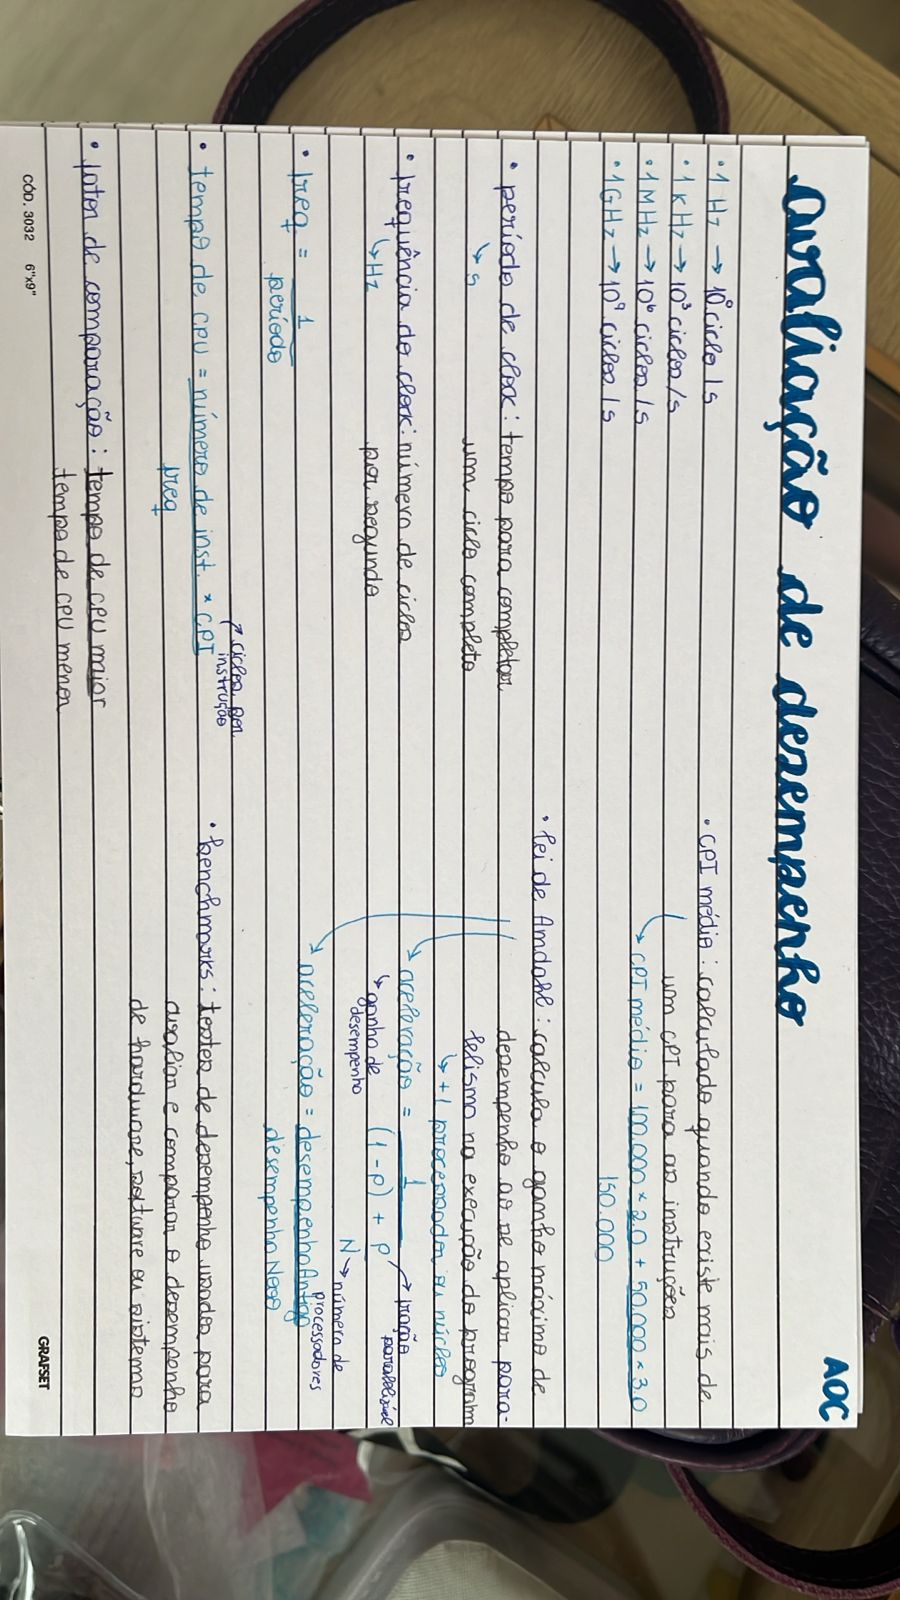 AOC
avaliação de desempenho
• 1 Hz → 10⁰ ciclo/s
• 1 KHz → 10³ ciclos/s
• 1 MHz → 10⁶ ciclos/s
• 1 GHz → 10⁹ ciclos/s
• período de clock: tempo para completar
↳ s um ciclo completo
• frequência do clock: número de ciclos
↳ Hz por segundo
• freq = 1
período
↗ ciclos por
instrução
• tempo de CPU = número de inst. × CPI
freq
• fator de comparação: tempo de CPU maior
tempo de CPU menor
• CPI médio: calculado quando existe mais de
um CPI para as instruções
↳ CPI médio = 100.000 × 2.0 + 50.000 × 3.0
150.000
• lei de Amdahl: calcula o ganho máximo de
desempenho ao se aplicar para-
lelismo na execução do program
↳ +1 processador ou núcleo
↳ aceleração = 1
(1-p) + p → fração
paralelizável
N → número de
processadores
↳ ganho de
desempenho
↳ aceleração = desempenho Antigo
desempenho Novo
• benchmarks: testes de desempenho usados para
avaliar e comparar o desempenho
de hardware, software ou sistema
CÓD. 3032 6"x9"
GRAFSET